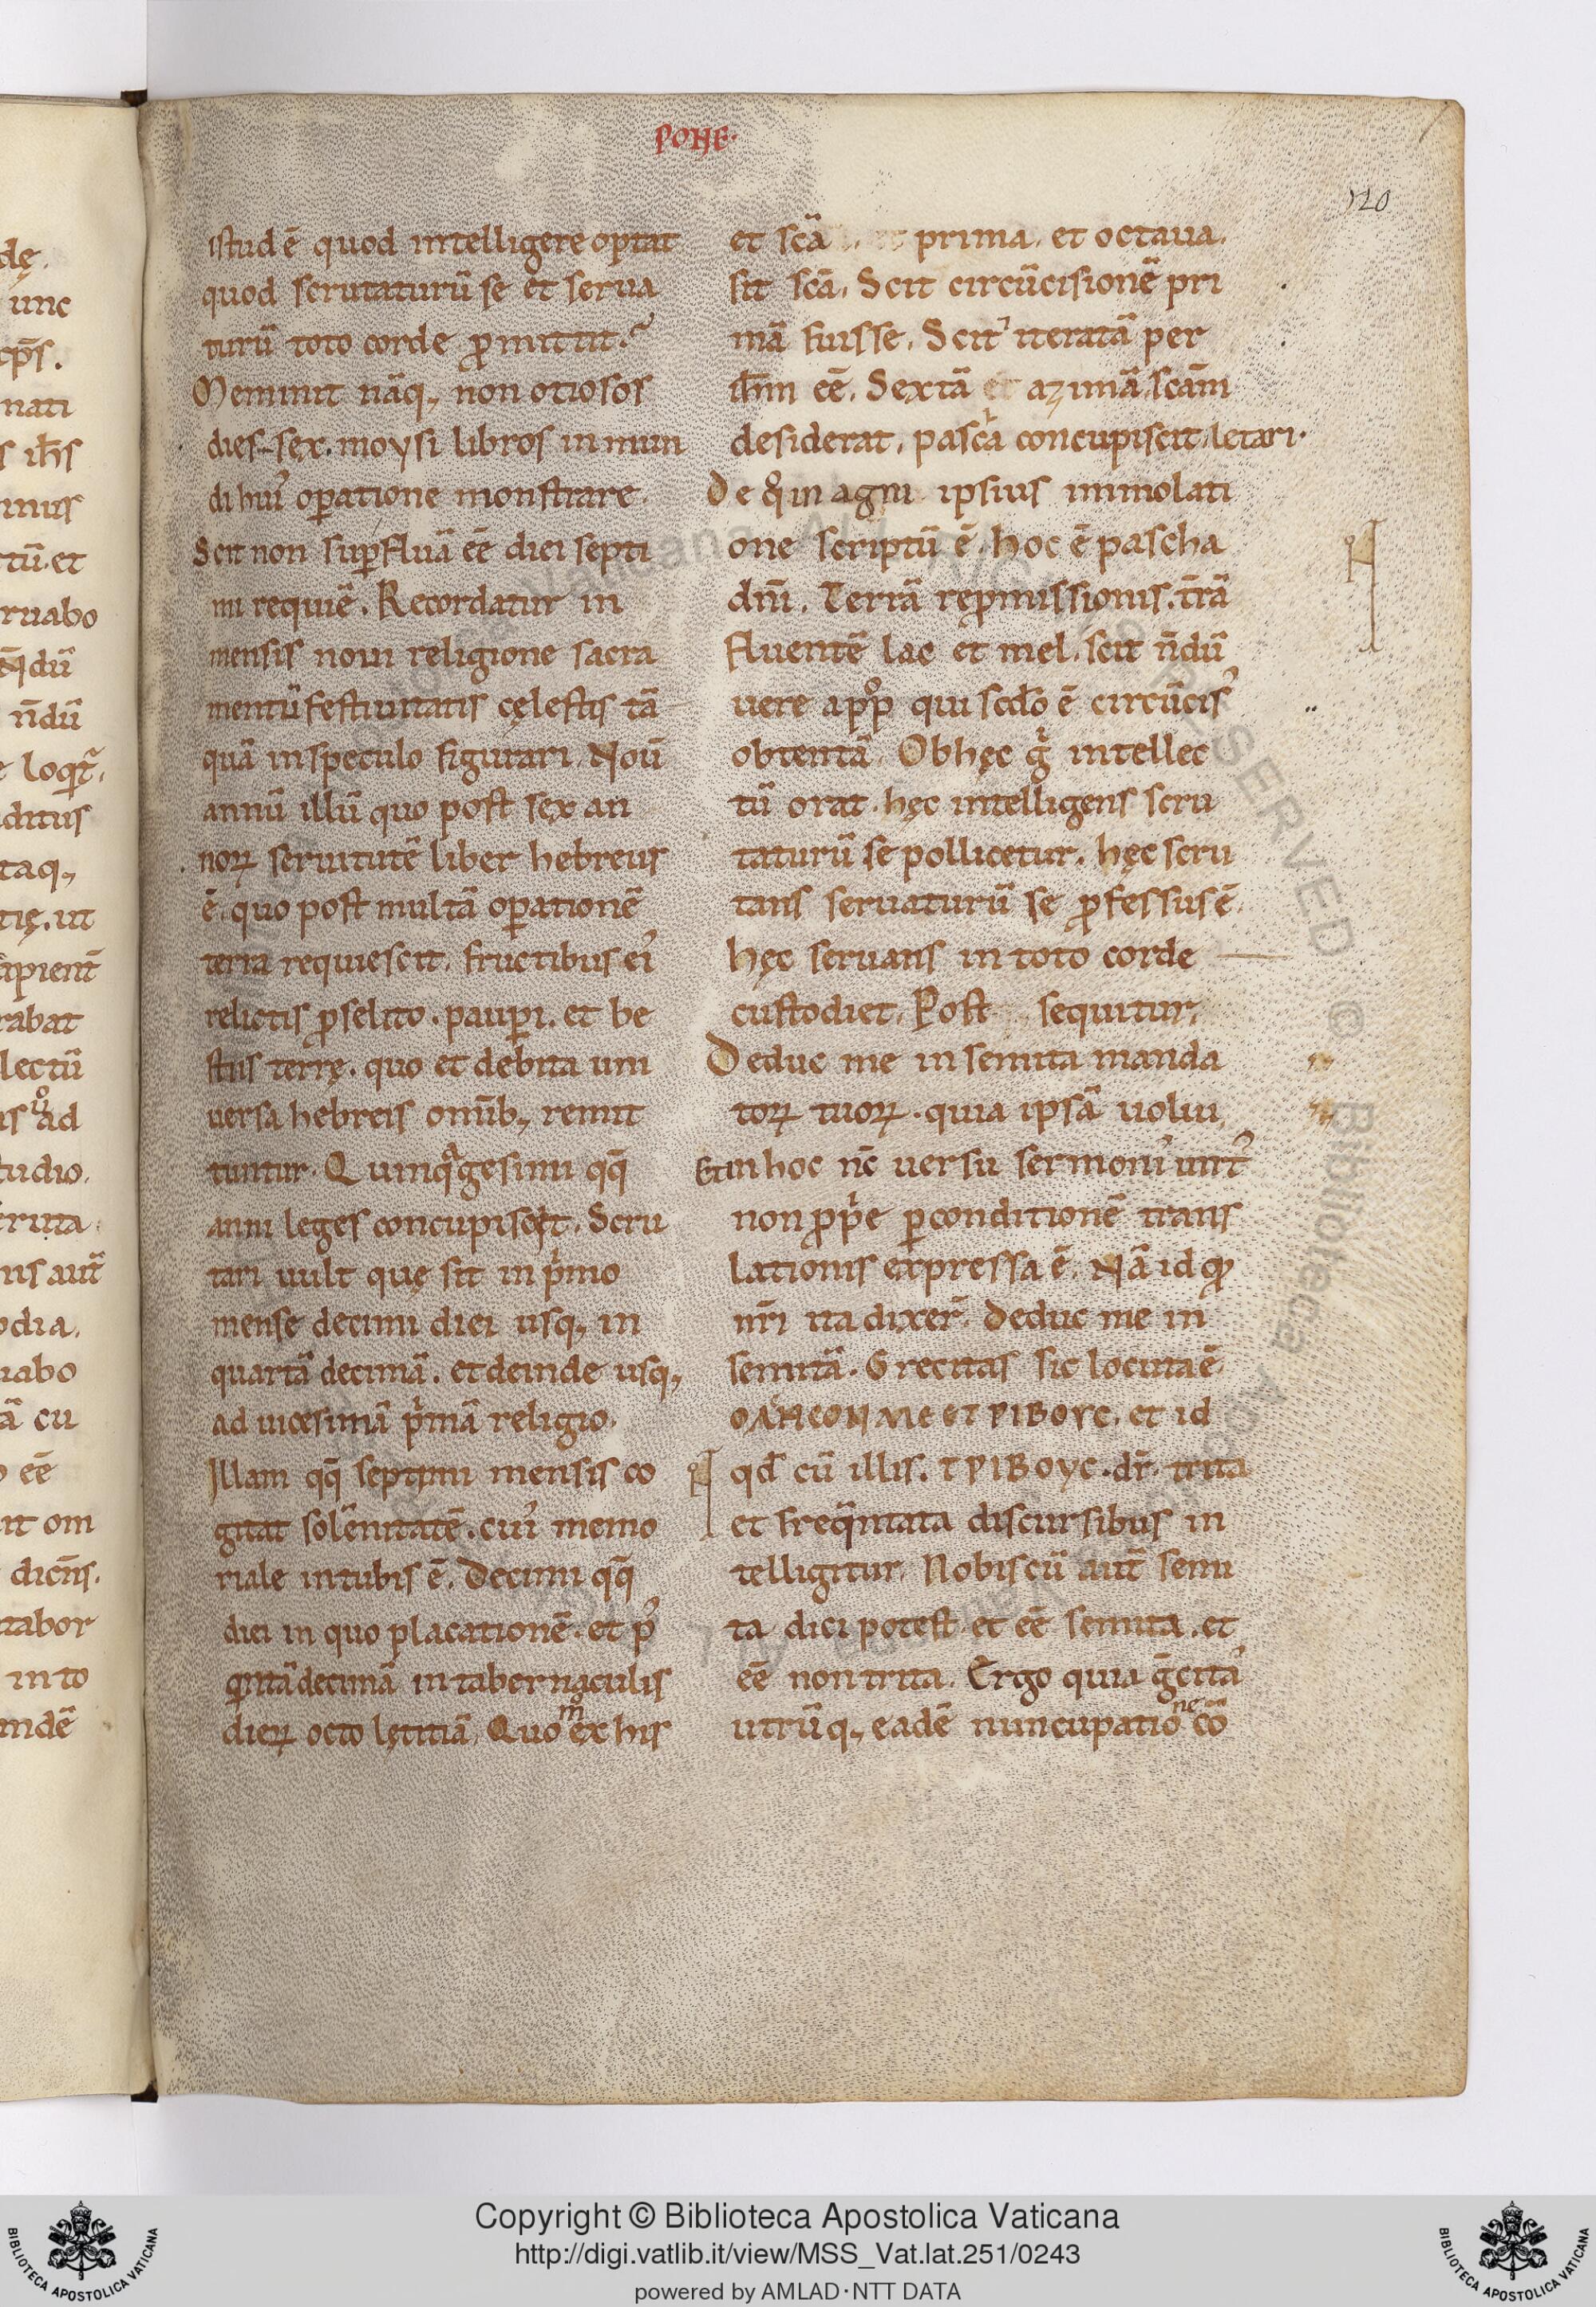 PONE.
120
istud ē quod intelligere optat
quod scrutaturū se et serua
turū toto corde ꝓmittit.
Meminit nāq, non otiosos
dies sex. moysi libros in mun
di hui᾽ oꝑatione monstrare.
Scit non suꝑfluā eē diei septi
mi requiē. Recordatur in
mensis noui religione sacra
mentū festiuitatis cęlestis tā
quā in speculo figurari. Nouū
annū illū quo post sex an
noꝝ seruitutē liber hebreus
ē. quo post multā oꝑationē
terra requiescit. fructibus ei᾽
relictis ꝓselito. pauꝑi. et be
stiis terrę. quo et debita uni
uersa hebreis omīb, remit
tuntur. Quinqᵃgesimi qq̄
anni leges concupiscit. Scru
tari uult quę sit in pⁱmo
mense decimi diei usq, in
quartā decimā. et deinde usq,
ad uicesimā pⁱmā religio.
Illam qq̄ septimi mensis co
gitat solēnitatē. cui᾽ memo
riale in tubis ē. Decimi qq̄
diei in quo placationē. et p᾽
qⁱntā decimā in tabernaculis
dieꝝ octo lętitiā. Quoᵐ ex his
et scā prima. et octaua.
sit scā. Scit circūcisionē pri
mā fuisse. Scit iteratā per
ih̄m eē. Sextā et azimā scām
desiderat. pascā concupiscit letari.
De qͦ in agni ipsius immolati
one scriptū ē. hoc ē pascha
dn̄i. Terrā reꝓmissionis. tr̄ā
fluentē lac et mel. scit n̄dū
uere a ppͦlo qui scdo ē circūcis᾽
obtentā. Ob hęc gͥ intellec
tū orat. hęc intelligens scru
taturū se pollicetur. hęc scru
tans seruaturū se ꝓfessus ē.
hęc seruans in toto corde
custodiet. Post sequitur.
Deduc me in semita manda
toꝝ tuoꝝ. quia ipsā uolui.
Et in hoc nc̄ uersu sermoni᾽ uirt᾽
non ꝓpⁱe ꝑ conditionē trans
lationis expressa ē. Nā id qͦ
nr̄i ita dixer̄. Deduc me in
semitā. Grecitas sic locuta ē
ΟΔΗΓΟΝ ΜΕ ΕΤ ΡΙΒΟΥC. et id
qd̄ cū illis. ΤΡΙΒΟΥC. dr̄. trita
et freqͣntata discursibus in
telligitur. Nobiscū aut̄ semi
ta dici potest. et eē semita. et
eē non trita. Ergo quia g̅ecita᾽
utrūq, eadē nuncupationē cō